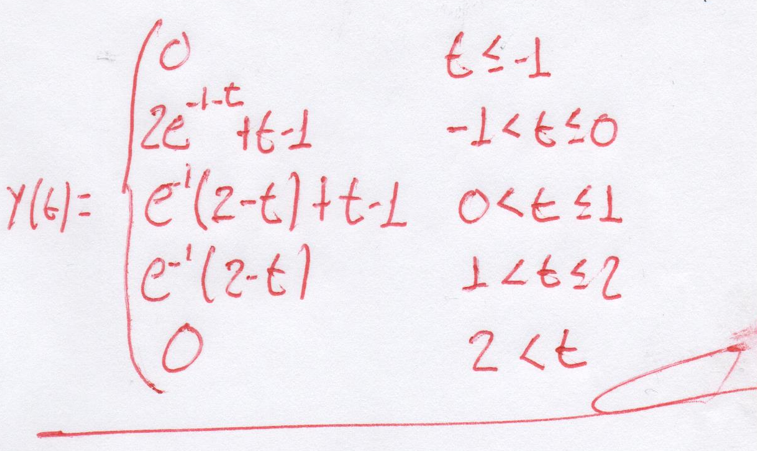 0 t ≤ -1
2e^{-1-t} + t - 1 -1 < t ≤ 0
y(t) = e^{-1}(2-t) + t - 1 0 < t ≤ 1
e^{-1}(2-t) 1 < t ≤ 2
0 2 < t